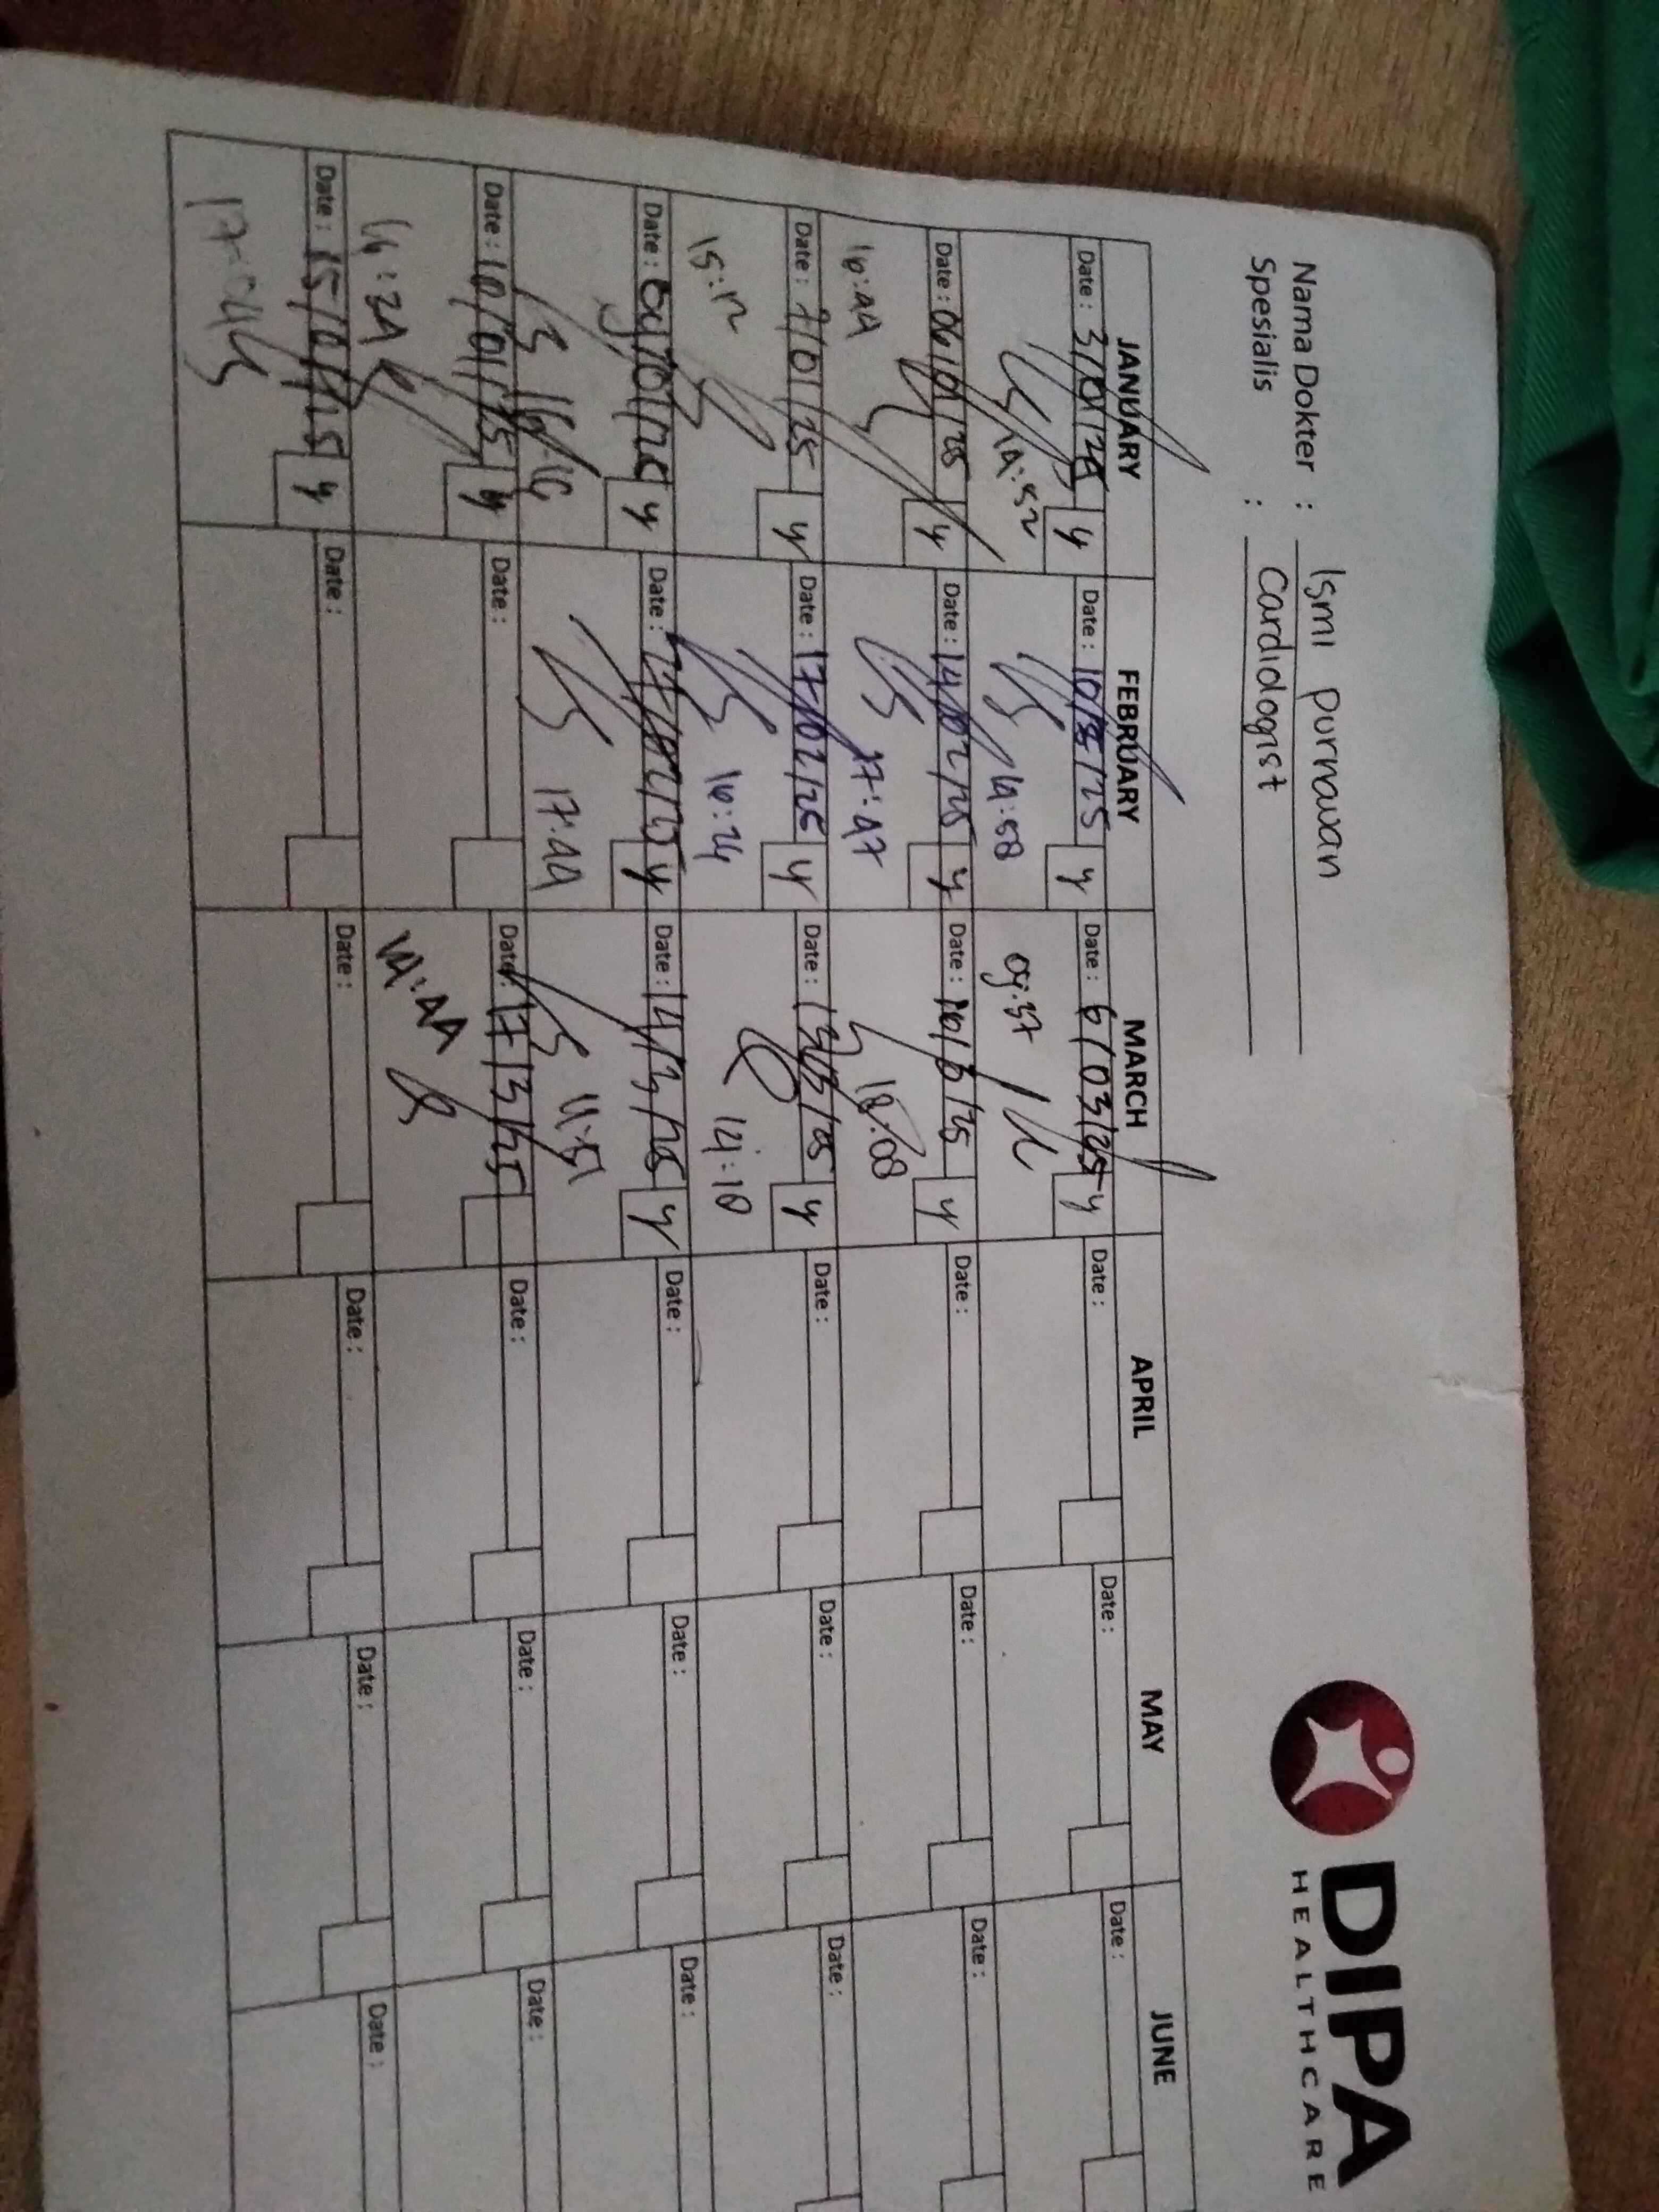 DIPA
HEALTHCARE
Nama Dokter : Ismi Purnawan
Spesialis : Cardiologist
JANUARY FEBRUARY MARCH APRIL MAY JUNE
Date : 3/01/25 y Date : 10/ /25 y Date : 6/03/25 y Date : Date : Date :
14:52 14:58 09:37
Date : 06/01/25 y Date : 14/02/25 y Date : 10/3/25 y Date : Date : Date :
16:44 17:47 18:08
Date : 7/01/25 y Date : 17/02/25 y Date : 13/3/25 y Date : Date : Date :
15:12 16:24 14:10
Date : 09/01/25 y Date : 27/02/25 y Date : 14/3/25 y Date : Date : Date :
16:16 17:44 11:51
Date : 10/01/25 y Date : Date : 17/3/25 Date : Date : Date :
14:24 14:44
Date : 15/01/25 y Date : Date : Date : Date : Date :